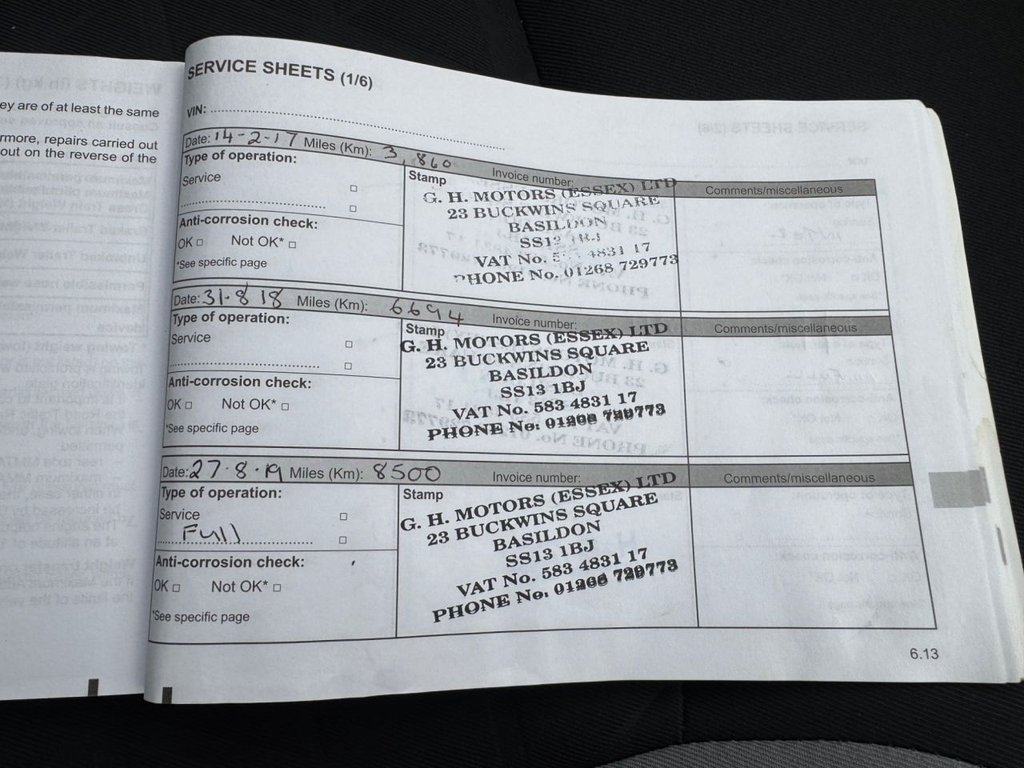 ey are of at least the same
rmore, repairs carried out
out on the reverse of the
SERVICE SHEETS (1/6)
VIN:
Date: 14-2-17 Miles (Km): 3,860 Invoice number:
Type of operation:
Service
Anti-corrosion check:
OK □ Not OK* □
*See specific page
Stamp
G. H. MOTORS (ESSEX) LTD
23 BUCKWINS SQUARE
BASILDON
1BJ
VAT No. 4831 17
PHONE No. 01268 729773
Comments/miscellaneous
Date: 31-8 18 Miles (Km): 6694 Invoice number:
Type of operation:
Service
Anti-corrosion check:
OK □ Not OK* □
*See specific page
Stamp
G. H. MOTORS (ESSEX) LTD
23 BUCKWINS SQUARE
BASILDON
SS13 1BJ
VAT No. 583 4831 17
PHONE No: 01268 729773
Comments/miscellaneous
Date: 27-8-19 Miles (Km): 8500 Invoice number:
Type of operation:
Service
Full
Anti-corrosion check:
OK □ Not OK* □
*See specific page
Stamp
G. H. MOTORS (ESSEX) LTD
23 BUCKWINS SQUARE
BASILDON
SS13 1BJ
VAT No. 583 4831 17
PHONE No: 01268 729773
Comments/miscellaneous
6.13